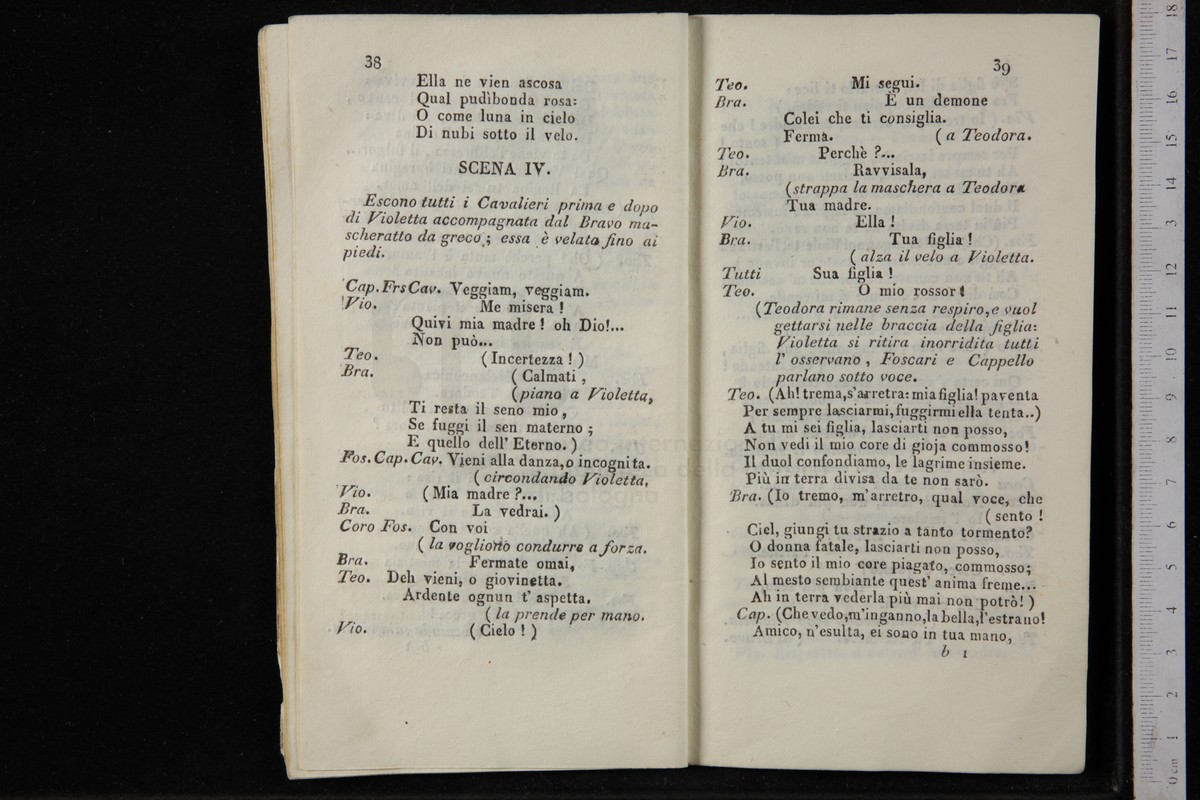 38
Ella ne vien ascosa
Qual pudìbonda rosa:
O come luna in cielo
Di nubi sotto il velo.
SCENA IV.
Escono tutti i Cavalieri prima e dopo
di Violetta accompagnata dal Bravo ma-
scheratto da greco; essa è velata fino ai
piedi.
Cap. Frs Cav. Veggiam, veggiam.
Vio. Me misera!
Quivi mia madre! oh Dio!...
Non può...
Teo. (Incertezza!)
Bra. (Calmati,
(piano a Violetta,
Ti resta il seno mio,
Se fuggi il sen materno;
E quello dell' Eterno.)
Fos. Cap. Cav. Vieni alla danza, o incognita.
(circondando Violetta,
Vio. (Mia madre?...
Bra. La vedrai.)
Coro Fos. Con voi
(la vogliono condurre a forza.
Bra. Fermate omai,
Teo. Deh vieni, o giovinetta.
Ardente ognun t' aspetta.
(la prende per mano.
Vio. (Cielo!)
39
Teo. Mi segui.
Bra. È un demone
Colei che ti consiglia.
Ferma. (a Teodora.
Teo. Perchè?...
Bra. Ravvisala,
(strappa la maschera a Teodora
Tua madre.
Vio. Ella!
Bra. Tua figlia!
(alza il velo a Violetta.
Tutti Sua figlia!
Teo. O mio rossor!
(Teodora rimane senza respiro, e vuol
gettarsi nelle braccia della figlia:
Violetta si ritira inorridita tutti
l' osservano, Foscari e Cappello
parlano sotto voce.
Teo. (Ah! trema, s'arretra: mia figlia! paventa
Per sempre lasciarmi, fuggirmi ella tenta..)
A tu mi sei figlia, lasciarti non posso,
Non vedi il mio core di gioja commosso!
Il duol confondiamo, le lagrime insieme.
Più in terra divisa da te non sarò.
Bra. (Io tremo, m'arretro, qual voce, che
(sento!
Ciel, giungi tu strazio a tanto tormento?
O donna fatale, lasciarti non posso,
Io sento il mio core piagato, commosso;
Al mesto sembiante quest' anima freme...
Ah in terra vederla più mai non potrò!)
Cap. (Che vedo, m'inganno, la bella, l'estrano!
Amico, n'esulta, ei sono in tua mano,
b 1